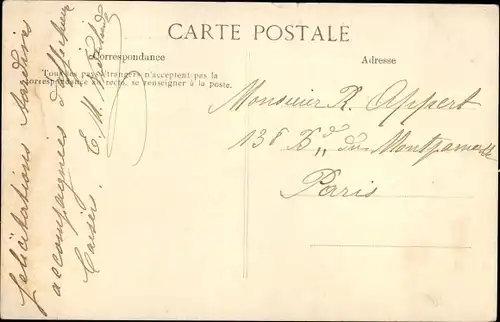 CARTE POSTALE
Correspondance
Tous les pays étrangers n'acceptent pas la
correspondance au recto, se renseigner à la poste.
Adresse
félicitations tardives
accompagnées d'affectueux
baisers. E. M.
Monsieur R. Appert
138 Bd du Montparnasse
Paris